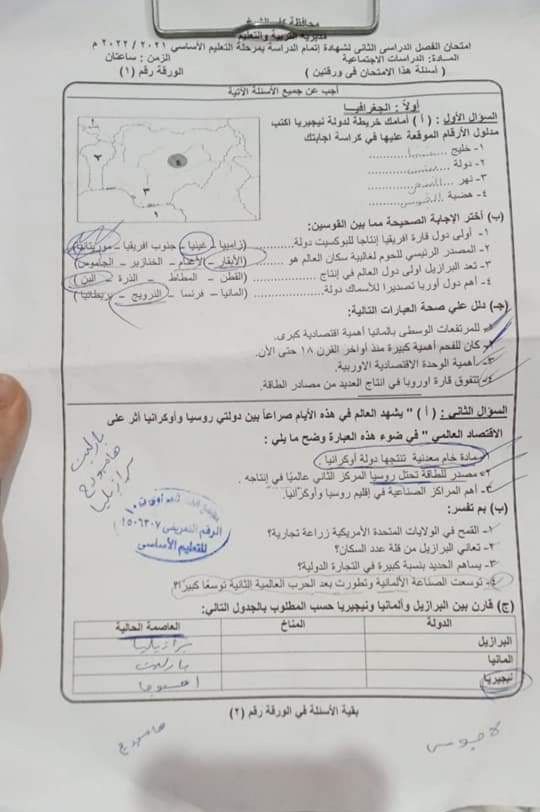 محافظة كفر الشيخ
مديرية التربية والتعليم
امتحان الفصل الدراسى الثانى لشهادة إتمام الدراسة بمرحلة التعليم الأساسى ٢٠٢١ / ٢٠٢٢ م
المادة: الدراسات الاجتماعية
الزمن: ساعتان
( أسئلة هذا الامتحان فى ورقتين )
الورقة رقم (١)
أجب عن جميع الأسئلة الآتية
أولاً : الجغرافيا
السؤال الأول : ( أ ) أمامك خريطة لدولة نيجيريا اكتب
مدلول الأرقام الموقعة عليها في كراسة اجابتك
١- خليج
٢- دولة
٣- نهر
٤- هضبة
(ب) أختر الإجابة الصحيحة مما بين القوسين:
١- أولى دول قارة افريقيا إنتاجا للبوكسيت دولة (زامبيا – غينيا – جنوب افريقيا – موريتانيا)
٢- المصدر الرئيسي للحوم لغالبية سكان العالم هو (الأبقار – الأغنام – الخنازير – الجاموس)
٣- تعد البرازيل اولى دول العالم في إنتاج (القطن – المطاط – الذرة – البن)
٤- أهم دول أوربا تصديرا للأسماك دولة (المانيا – فرنسا – النرويج – بريطانيا)
(جـ) دلل علي صحة العبارات التالية:
١- للمرتفعات الوسطى بالمانيا أهمية اقتصادية كبرى.
٢- كان للفحم أهمية كبيرة منذ أواخر القرن ١٨ حتى الأن.
٣- أهمية الوحدة الاقتصادية الاوربية.
٤- تتفوق قارة اوروبا في انتاج العديد من مصادر الطاقة.
السؤال الثاني : ( أ ) " يشهد العالم في هذه الأيام صراعاً بين دولتي روسيا وأوكرانيا أثر على
الاقتصاد العالمي " في ضوء هذه العبارة وضح ما يلي :
١- مادة خام معدنية تنتجها دولة أوكرانيا.
٢- مصدر للطاقة تحتل روسيا المركز الثاني عالميًا في إنتاجه .
٣- أهم المراكز الصناعية في إقليم روسيا وأوكرانيا.
(ب) بم تفسر:
١- القمح في الولايات المتحدة الأمريكية زراعة تجارية؟
٢- تعاني البرازيل من قلة عدد السكان؟
٣- يساهم الحديد بنسبة كبيرة في التجارة الدولية؟
٤- توسعت الصناعة الألمانية وتطورت بعد الحرب العالمية الثانية توسعًا كبيرًا؟
(ج) قارن بين البرازيل وألمانيا ونيجيريا حسب المطلوب بالجدول التالي:
الدولة المناخ العاصمة الحالية
البرازيل برازيليا
المانيا بارلين
نيجيريا
بقية الأسئلة في الورقة رقم (٢)
بارلين
هامبورج
برازيليا
للتعليم الأساسى
هامبورج
لاجوس